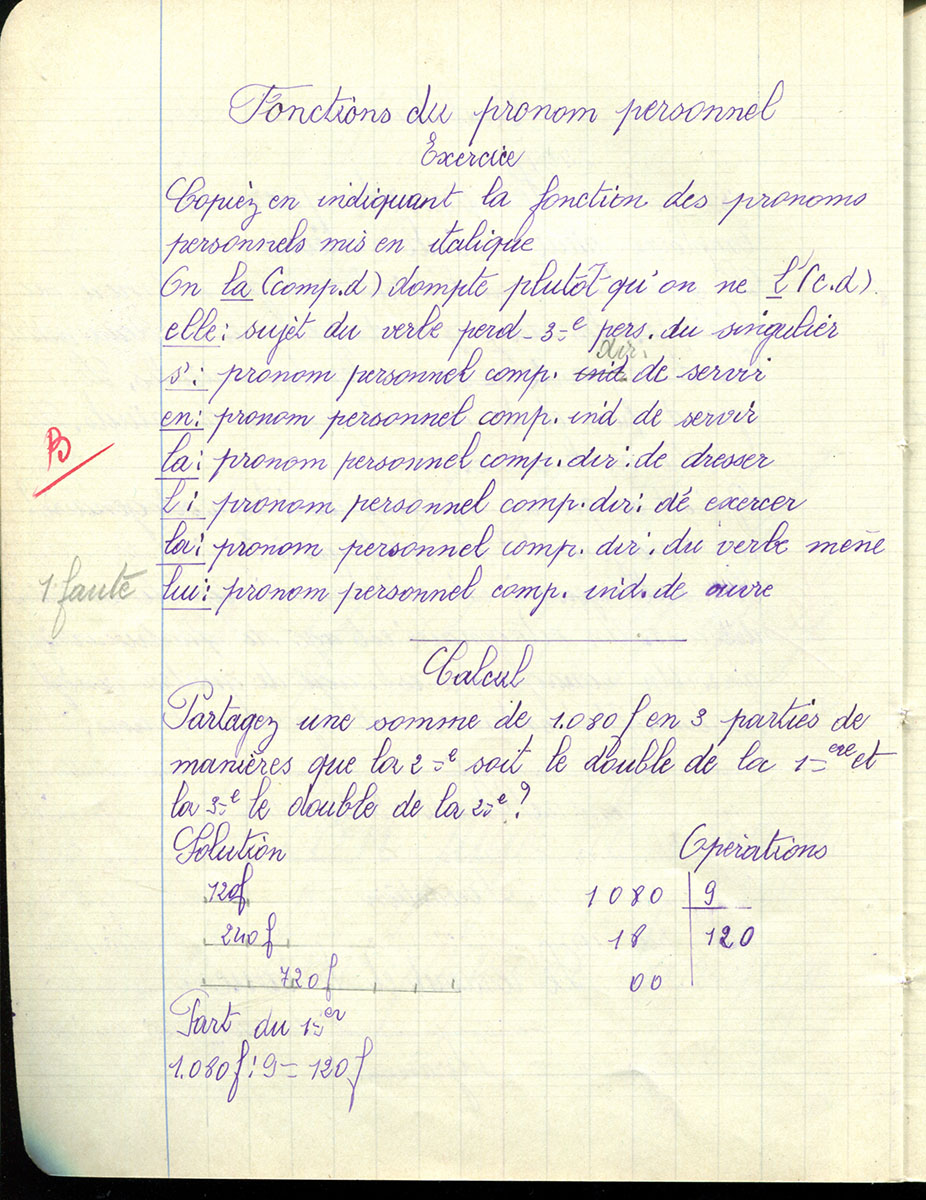 Fonctions du pronom personnel
Exercice
Copiez en indiquant la fonction des pronoms
personnels mis en italique
On la (comp.d) dompte plutôt qu'on ne l' (c.d)
elle: sujet du verbe perd - 3e pers. du singulier
dir.
s': pronom personnel comp. ind. de servir
en: pronom personnel comp. ind de servir
B
la: pronom personnel comp. dir. de dresser
l': pronom personnel comp. dir: de exercer
la: pronom personnel comp. dir. du verbe mène
1 faute
lui: pronom personnel comp. ind. de
Calcul
Partagez une somme de 1.080 f en 3 parties de
manières que la 2e soit le double de la 1ere et
la 3e le double de la 2e ?
Solution Opérations
120f 1080 9
240 f 18 120
720 f 00
Part du 1er
1.080 f : 9 = 120 f